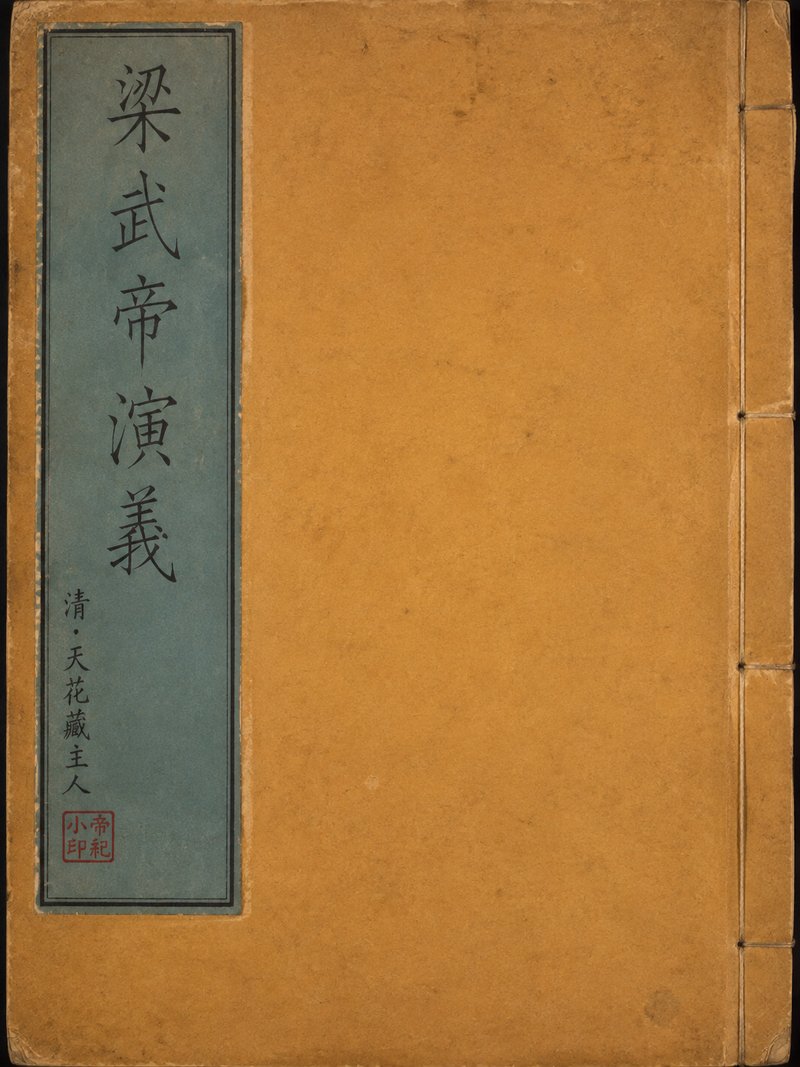 梁武帝演義
清·天花藏主人
帝紀
小印